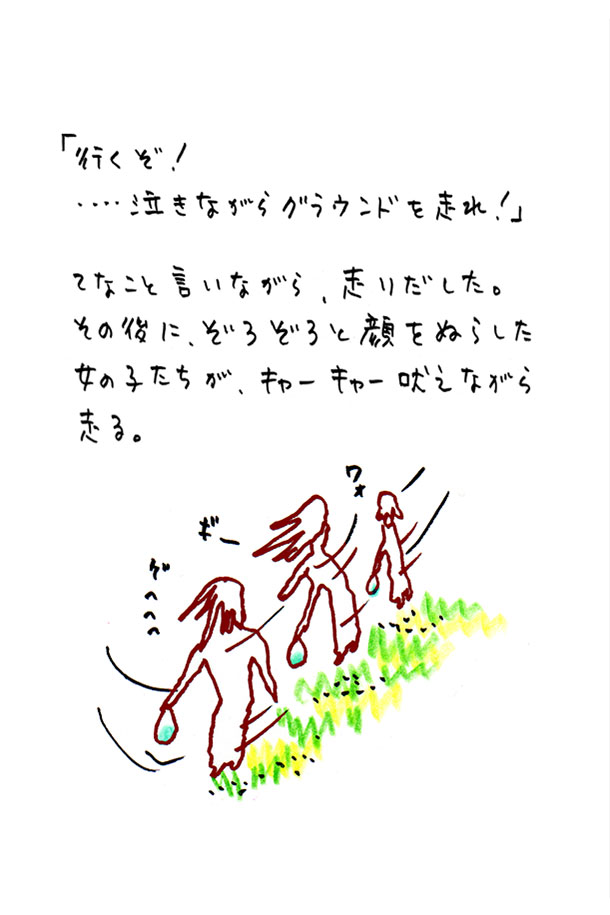 「行くぞ！
‥‥泣きながらグラウンドを走れ！」
てなこと言いながら、走りだした。
その後に、ぞろぞろと顔をぬらした
女の子たちが、キャーキャー吠えながら
走る。
ワォ
ギー
ぞへへへ